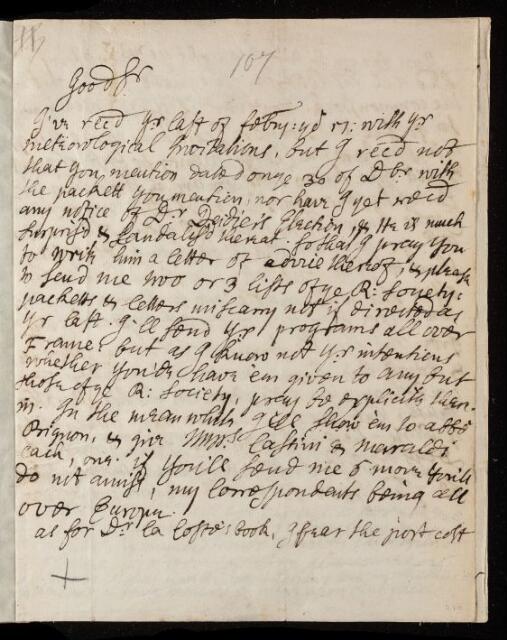 107
Good Sr
I've recd yr last of febry: ye 17: with yr
meteorological Invitations, but I recd not
that you mention dated onge 30 of Dbr with
the packett you mention, nor have I yet recd
any notice of Dr Deidier's Election, & He is much
surpris'd & scandalis'd thereat. so that I pray you
to write him a letter of advice thereof, & please
to send me two or 3 lists of ye R: Society:
packetts & letters miscarry not if directed as
yr last. I'll send yr programs all over
France but as I know not yr intentions
whether you'de have 'em given to any but
those of ye R: Society, pray be explicite there-
in. In the meanwhile I'll show 'em to abbé
Bignon, & give Mrs Cassini & Maraldi
each, one. if you'll send me 6 more you'll
do not amiss, my Correspondents being all
over Europe.
as for Dr la Coste's book, I fear the port cost